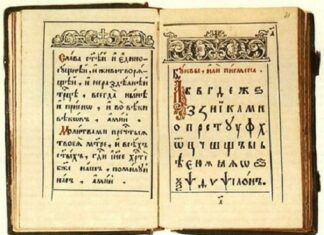 Слава ст҃ѣй и Едино
сущнѣй, и животворѧ
щей, и нераздѣлнѣй
тр҃це, всегда нынѣ
и присно, и во вѣки
вѣкомъ, аминь
Молитвами пречтыѧ
твоеѧ мт҃ре, и всѣхъ
ст҃ыхъ, гд҃и ісе хрт҃е
бж҃е нашъ, помилуй
насъ, аминь
Буквы, или писмена
А б в г д е ж ѕ
З з н і к л м н
о п р с т у ф х
ѡ ц ч ш щ ъ ы ь
ѣ ю ѫ ѧ
ѯ ѱ